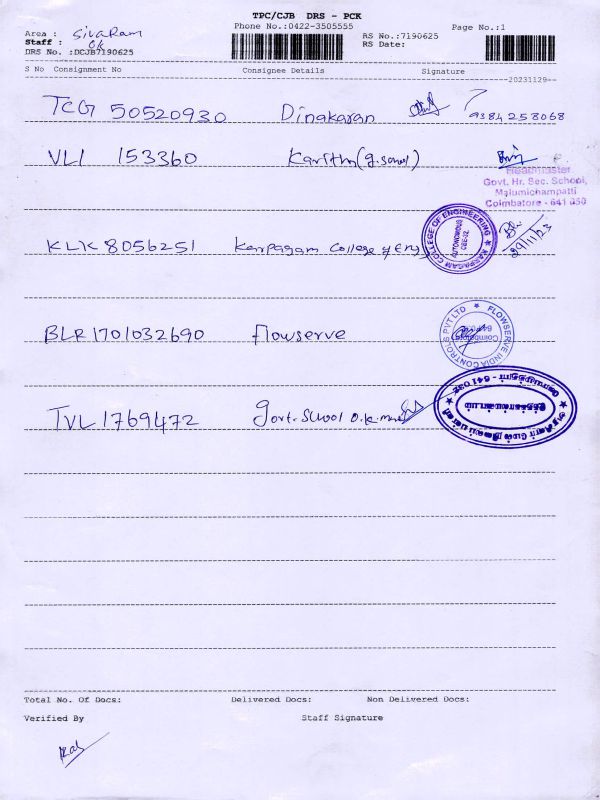 TPC/CJB DRS - PCK
Phone No.:0422-3505555
Page No.:1
Area : SivaRam
RS No.:7190625
Staff : OK
RS Date:
DRS No. :DCJB7190625
S No Consignment No Consignee Details Signature
20231129
TCG 50520930 Dinakaran 9384258068
VLI 153360
Headmaster
Govt. Hr. Sec. School,
Malumichampatti
Coimbatore - 641 050
29/11/23
KLK 8056251 Karpagam College of Eng
KARPAGAM COLLEGE OF ENGINEERING
AUTONOMOUS
BLR 1701032690 flowserve
FLOWSERVE INDIA CONTROLS PVT LTD
Coimbatore
TVL 1769472 Govt. School O.K.
641 032
Total No. Of Docs: Delivered Docs: Non Delivered Docs:
Verified By Staff Signature